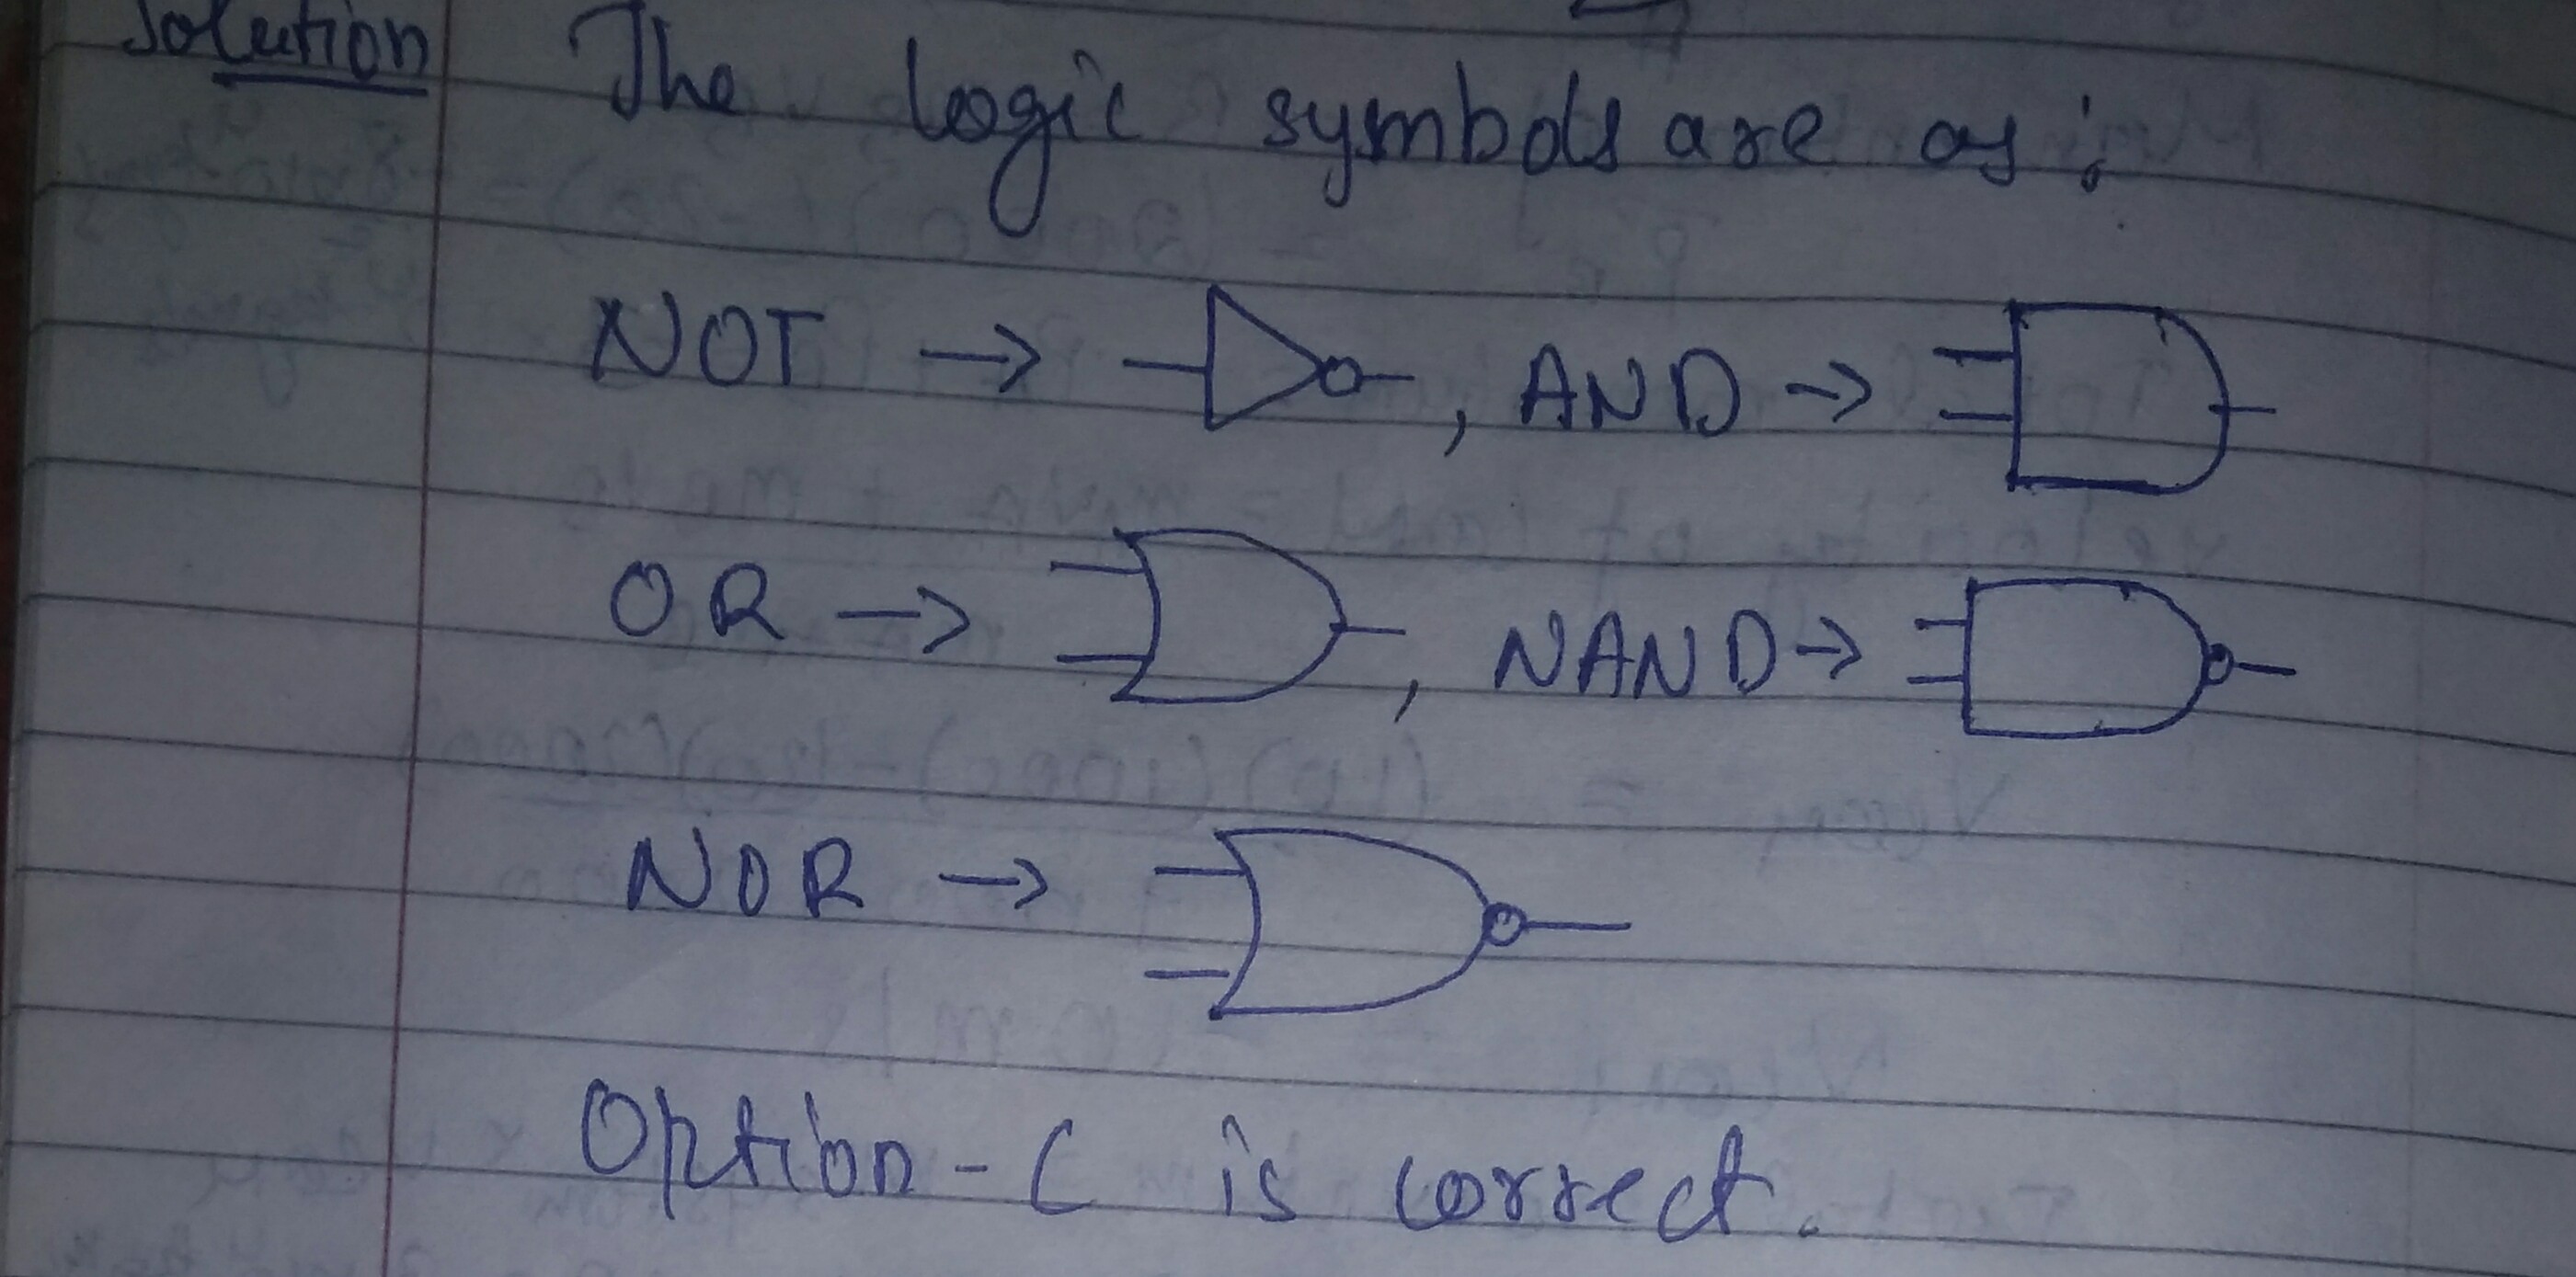 Solution The logic symbols are as:
NOT → , AND →
OR → , NAND →
NOR →
Option-C is correct.